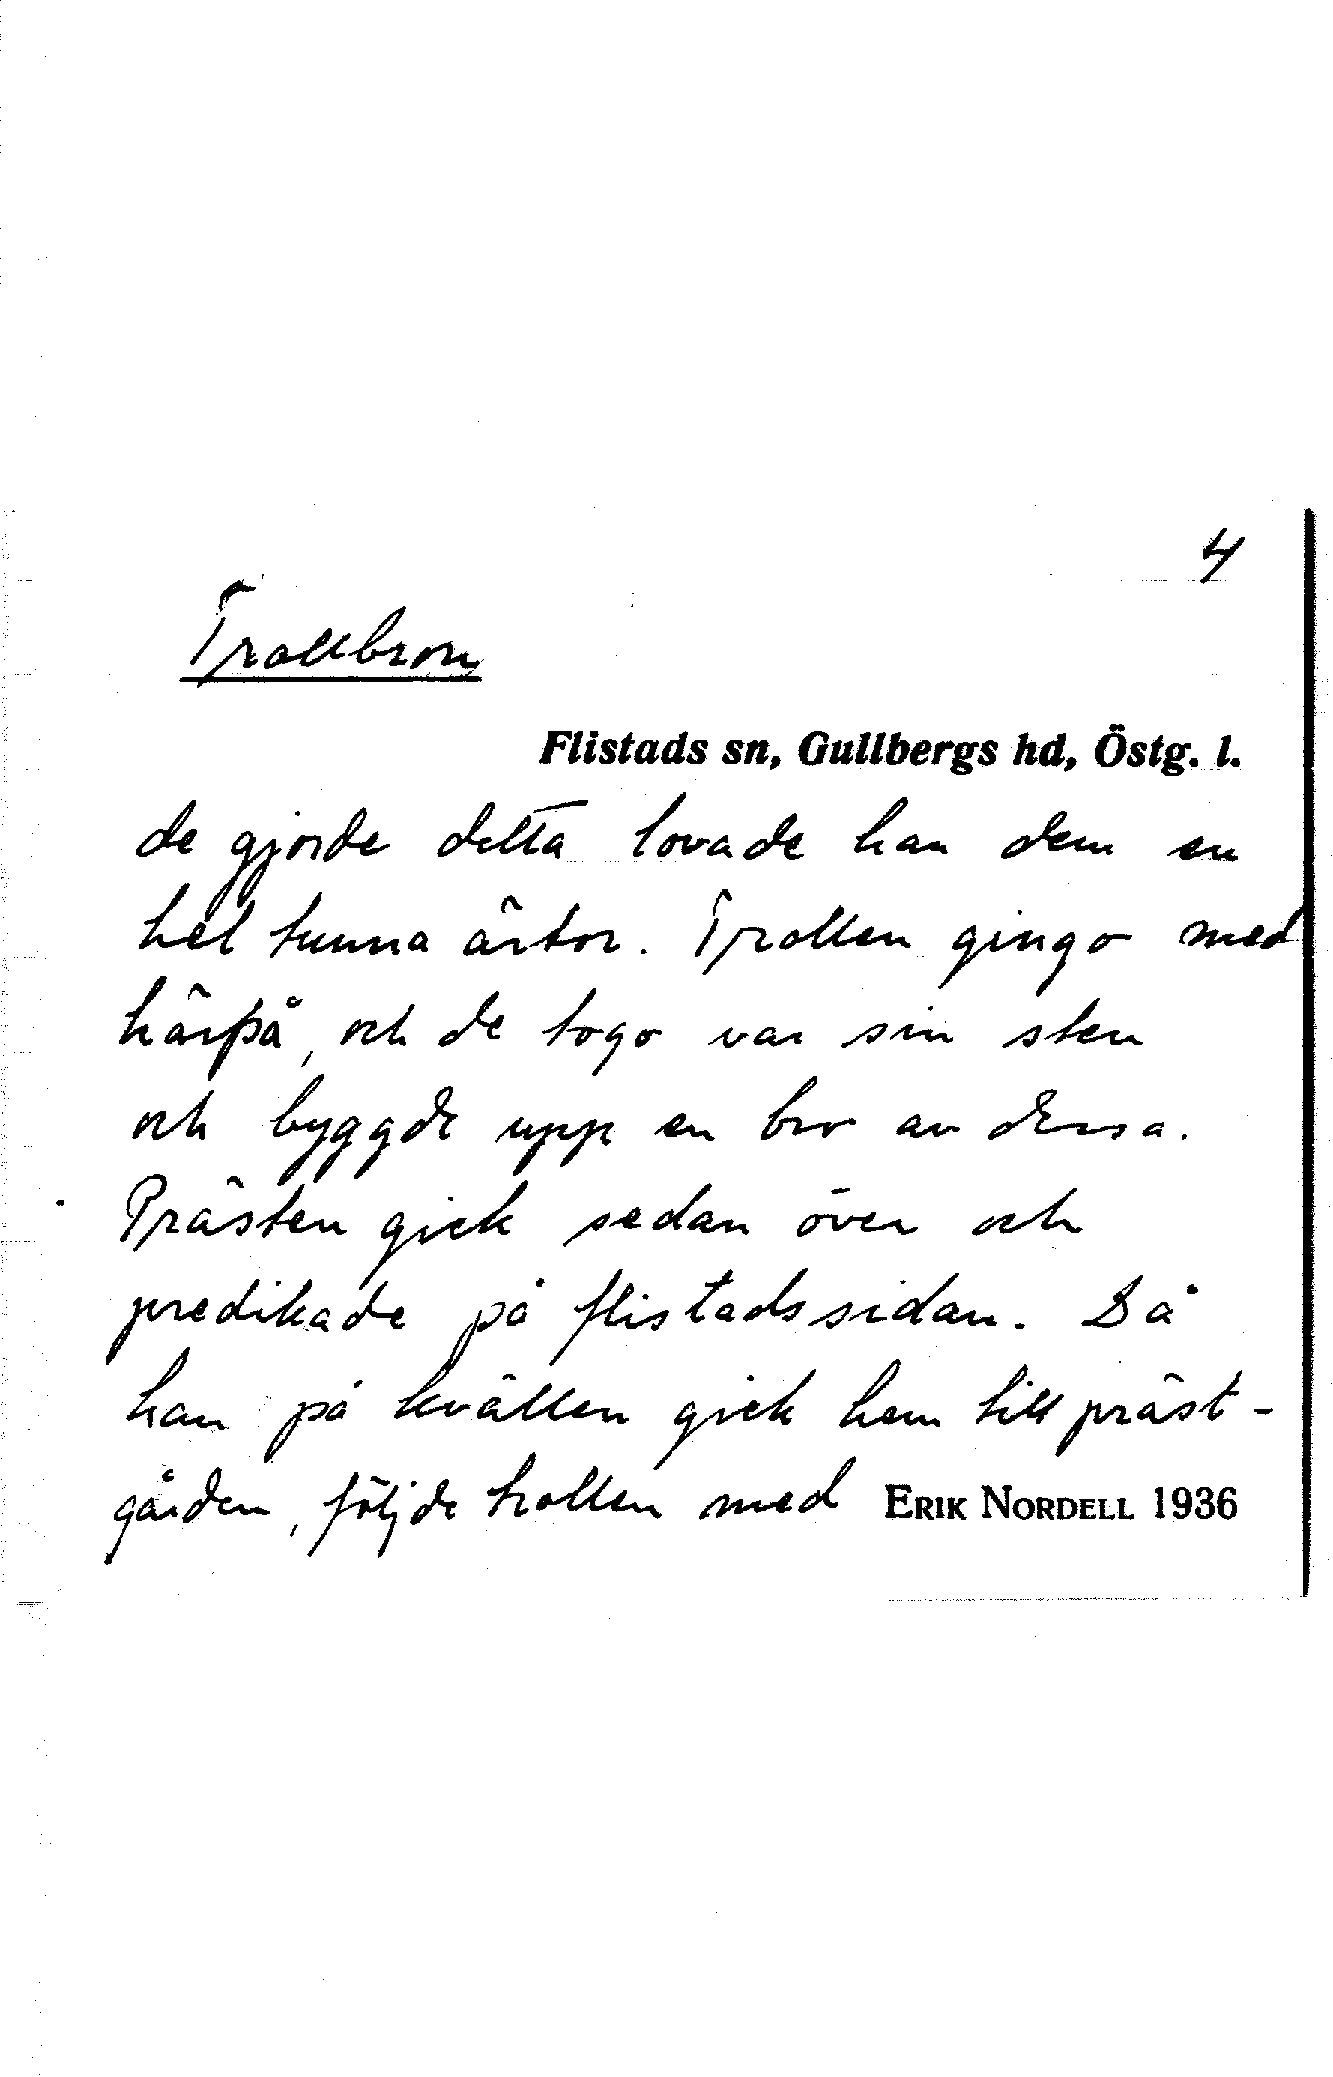 4
Trollbron
Flistads sn, Gullbergs hd, Östg. l.
de gjorde detta lovade han dem en
hel tunna ärtor. Trollen gingo med
härpå, och de togo var sin sten
och byggde upp en bro av dessa.
Prästen gick sedan över och
predikade på flistadssidan. Då
han på kvällen gick hem till präst-
gården, följde trollen med ERIK NORDELL 1936